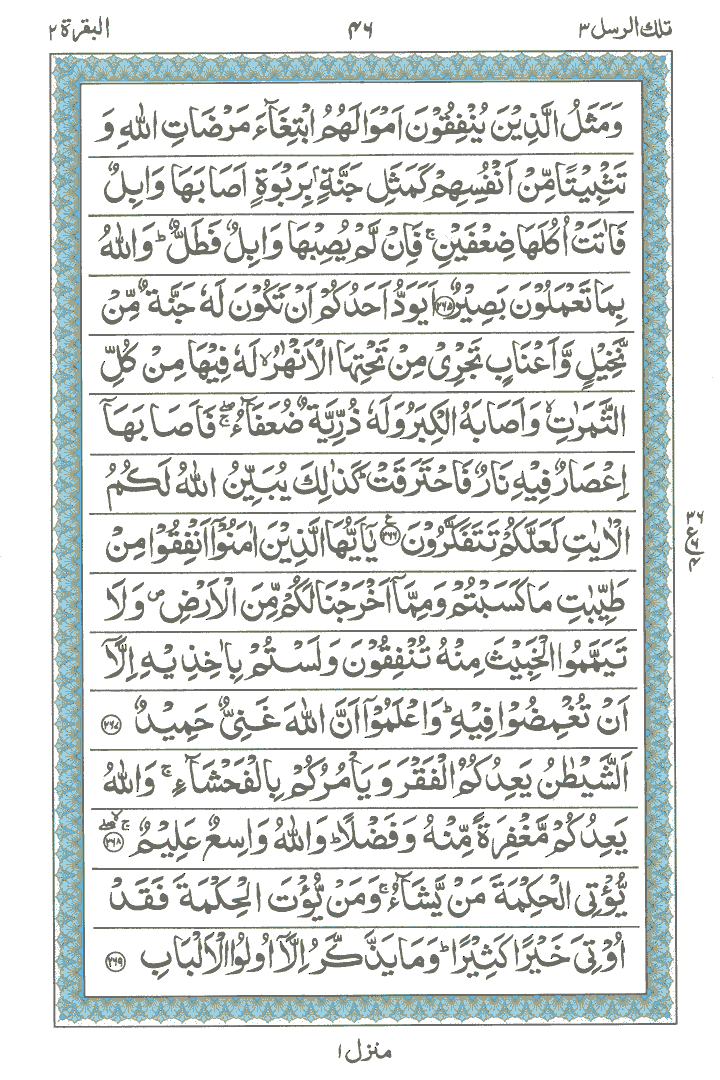 تلك الرسل ٣ ٤٦ البقرة ٢
وَمَثَلُ الَّذِيْنَ يُنْفِقُوْنَ اَمْوَالَهُمُ ابْتِغَآءَ مَرْضَاتِ اللّٰهِ وَ
تَثْبِيْتًا مِّنْ اَنْفُسِهِمْ كَمَثَلِ جَنَّةٍۭ بِرَبْوَةٍ اَصَابَهَا وَابِلٌ
فَاٰتَتْ اُكُلَهَا ضِعْفَيْنِ ۚ فَاِنْ لَّمْ يُصِبْهَا وَابِلٌ فَطَلٌّ ؕ وَاللّٰهُ
بِمَا تَعْمَلُوْنَ بَصِيْرٌ ﴿۲۶۵﴾ اَيَوَدُّ اَحَدُكُمْ اَنْ تَكُوْنَ لَهٗ جَنَّةٌ مِّنْ
نَّخِيْلٍ وَّاَعْنَابٍ تَجْرِىْ مِنْ تَحْتِهَا الْاَنْهٰرُ ۙ لَهٗ فِيْهَا مِنْ كُلِّ
الثَّمَرٰتِ ۙ وَاَصَابَهُ الْكِبَرُ وَلَهٗ ذُرِّيَّةٌ ضُعَفَآءُ ۖۚ فَاَصَابَهَاۤ
اِعْصَارٌ فِيْهِ نَارٌ فَاحْتَرَقَتْ ؕ كَذٰلِكَ يُبَيِّنُ اللّٰهُ لَكُمُ
الْاٰيٰتِ لَعَلَّكُمْ تَتَفَكَّرُوْنَ ﴿۲۶۶﴾ يٰۤاَيُّهَا الَّذِيْنَ اٰمَنُوْۤا اَنْفِقُوْا مِنْ
طَيِّبٰتِ مَا كَسَبْتُمْ وَمِمَّاۤ اَخْرَجْنَا لَكُمْ مِّنَ الْاَرْضِ ۪ وَلَا
تَيَمَّمُوا الْخَبِيْثَ مِنْهُ تُنْفِقُوْنَ وَلَسْتُمْ بِاٰخِذِيْهِ اِلَّاۤ
اَنْ تُغْمِضُوْا فِيْهِ ؕ وَاعْلَمُوْۤا اَنَّ اللّٰهَ غَنِىٌّ حَمِيْدٌ ﴿۲۶۷﴾
اَلشَّيْطٰنُ يَعِدُكُمُ الْفَقْرَ وَيَاْمُرُكُمْ بِالْفَحْشَآءِ ۚ وَاللّٰهُ
يَعِدُكُمْ مَّغْفِرَةً مِّنْهُ وَفَضْلًا ؕ وَاللّٰهُ وَاسِعٌ عَلِيْمٌ ﴿۲۶۸﴾
يُّؤْتِى الْحِكْمَةَ مَنْ يَّشَآءُ ۚ وَمَنْ يُّؤْتَ الْحِكْمَةَ فَقَدْ
اُوْتِىَ خَيْرًا كَثِيْرًا ؕ وَمَا يَذَّكَّرُ اِلَّاۤ اُولُوا الْاَلْبَابِ ﴿۲۶۹﴾
۳۶
ع
۴
منزل ١